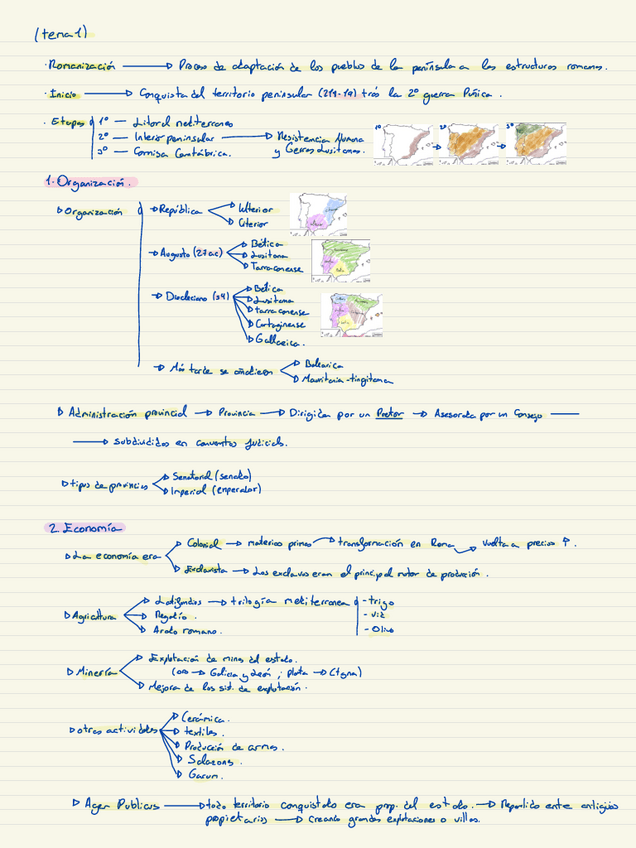 (tema 1)
· Romanización → Proceso de adaptación de los pueblos de la península a las estructuras romanas.
· Inicio → Conquista del territorio peninsular (219-19) tras la 2º guerra Púnica.
· Etapas
1º — Litoral mediterraneo
2º — Interior peninsular → Resistencia Numana y Gerras Lusitanas.
3º — Cornisa Cantábrica.
1º 2º 3º
1. Organización.
Organización
República → Ulterior
→ Citerior
Augusto (27 a.c) → Bética
→ Lusitana
→ Tarraconense
Diocleciano (s4) → Bética
→ Lusitana
→ tarraconense
→ Cartaginense
→ Gallaecia.
Más tarde se añadieron → Balearica
→ Mauritania-tingitana
Administración provincial → Provincia → Dirigida por un Pretor → Asesorado por un Consejo —
→ subdivididos en conventos judiciales.
tipos de provincias → Senatorial (senado)
→ Imperial (emperador)
2. Economía
La economía era → Colonial → materias primas → transformación en Roma → vuelta a precios ↑.
→ Esclavista → Los esclavos eran el principal motor de producción.
Agricultura → Latifundios → trilogía mediterranea
- trigo
- vid
- Olivo
→ Regadío.
→ Arado romano.
Minería → Explotación de minas del estado.
(oro → Galicia y León ; plata → Ctgna)
→ Mejora de los sist. de explotación.
otras actividades → Cerámica.
→ textiles.
→ Producción de armas.
→ Salazones.
→ Garum.
Ager Publicus → todo territorio conquistado era prop. del estado. → Repartido entre antiguos
propietarios → Creando grandes explotaciones o villas.